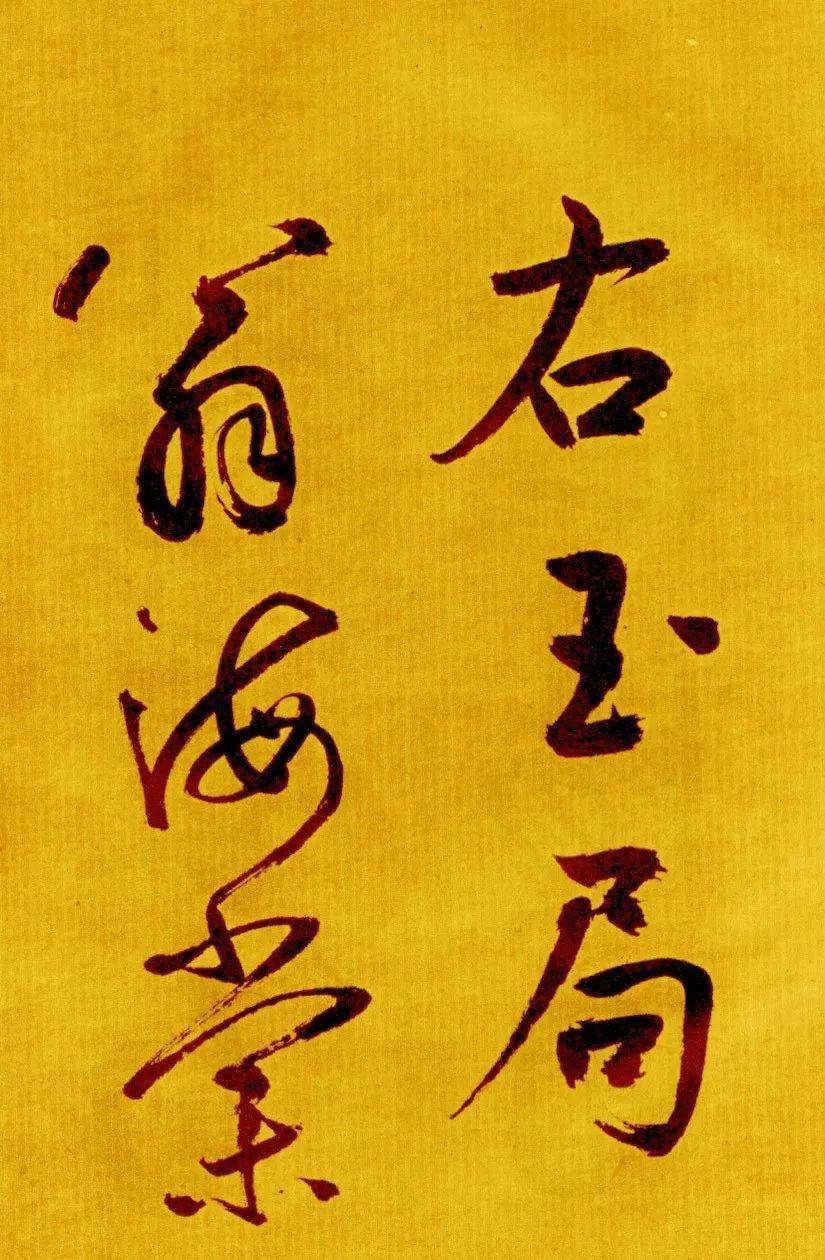 右玉局
翁海棠